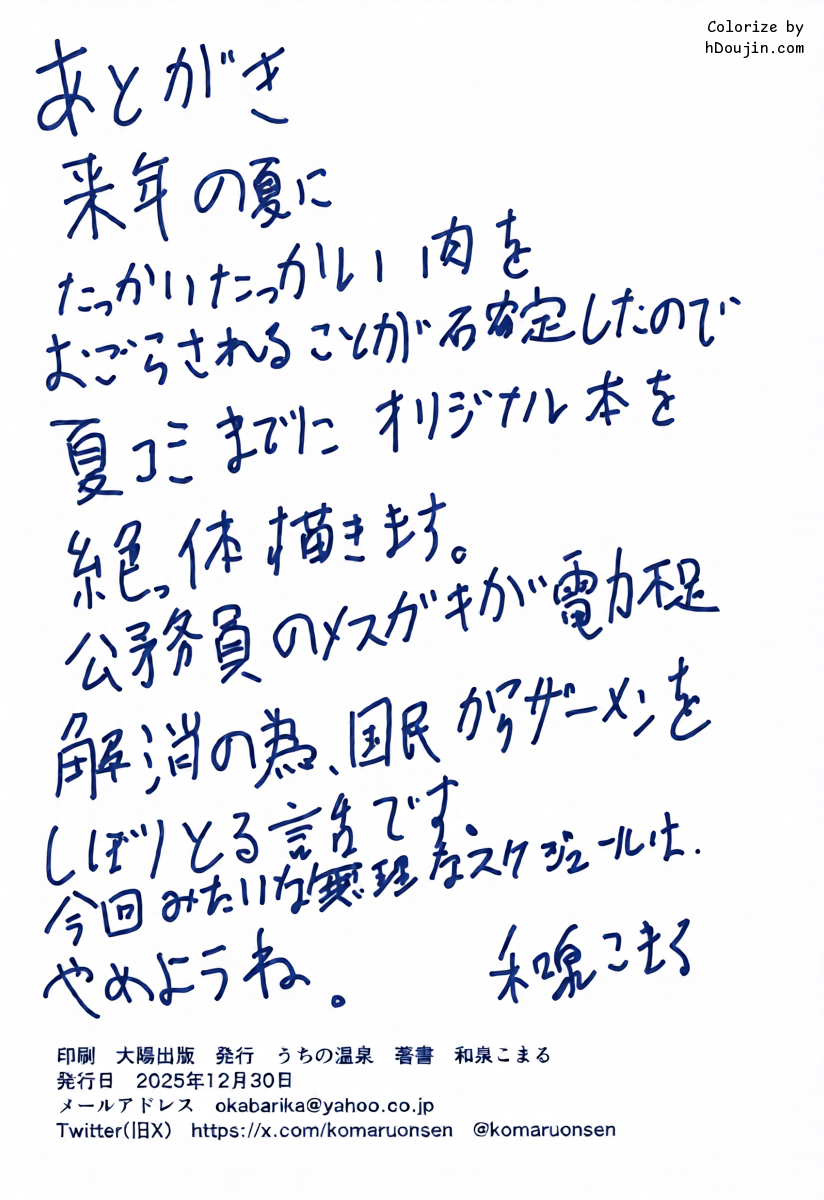 Colorize by
hDoujin.com
あとがき
来年の夏に
たっかいたっかい肉を
おごらされることが確定したので
夏コミまでにオリジナル本を
絶っ体描きます。
公務員のメスガキが電力不足
解消の為、国民からザーメンを
しぼりとる話です。
今回みたいな無理なスケジュールは、
やめようね。 和泉こまる
印刷 大陽出版 発行 うちの温泉 著書 和泉こまる
発行日 2025年12月30日
メールアドレス okabarika@yahoo.co.jp
Twitter(旧X) https://x.com/komaruonsen @komaruonsen